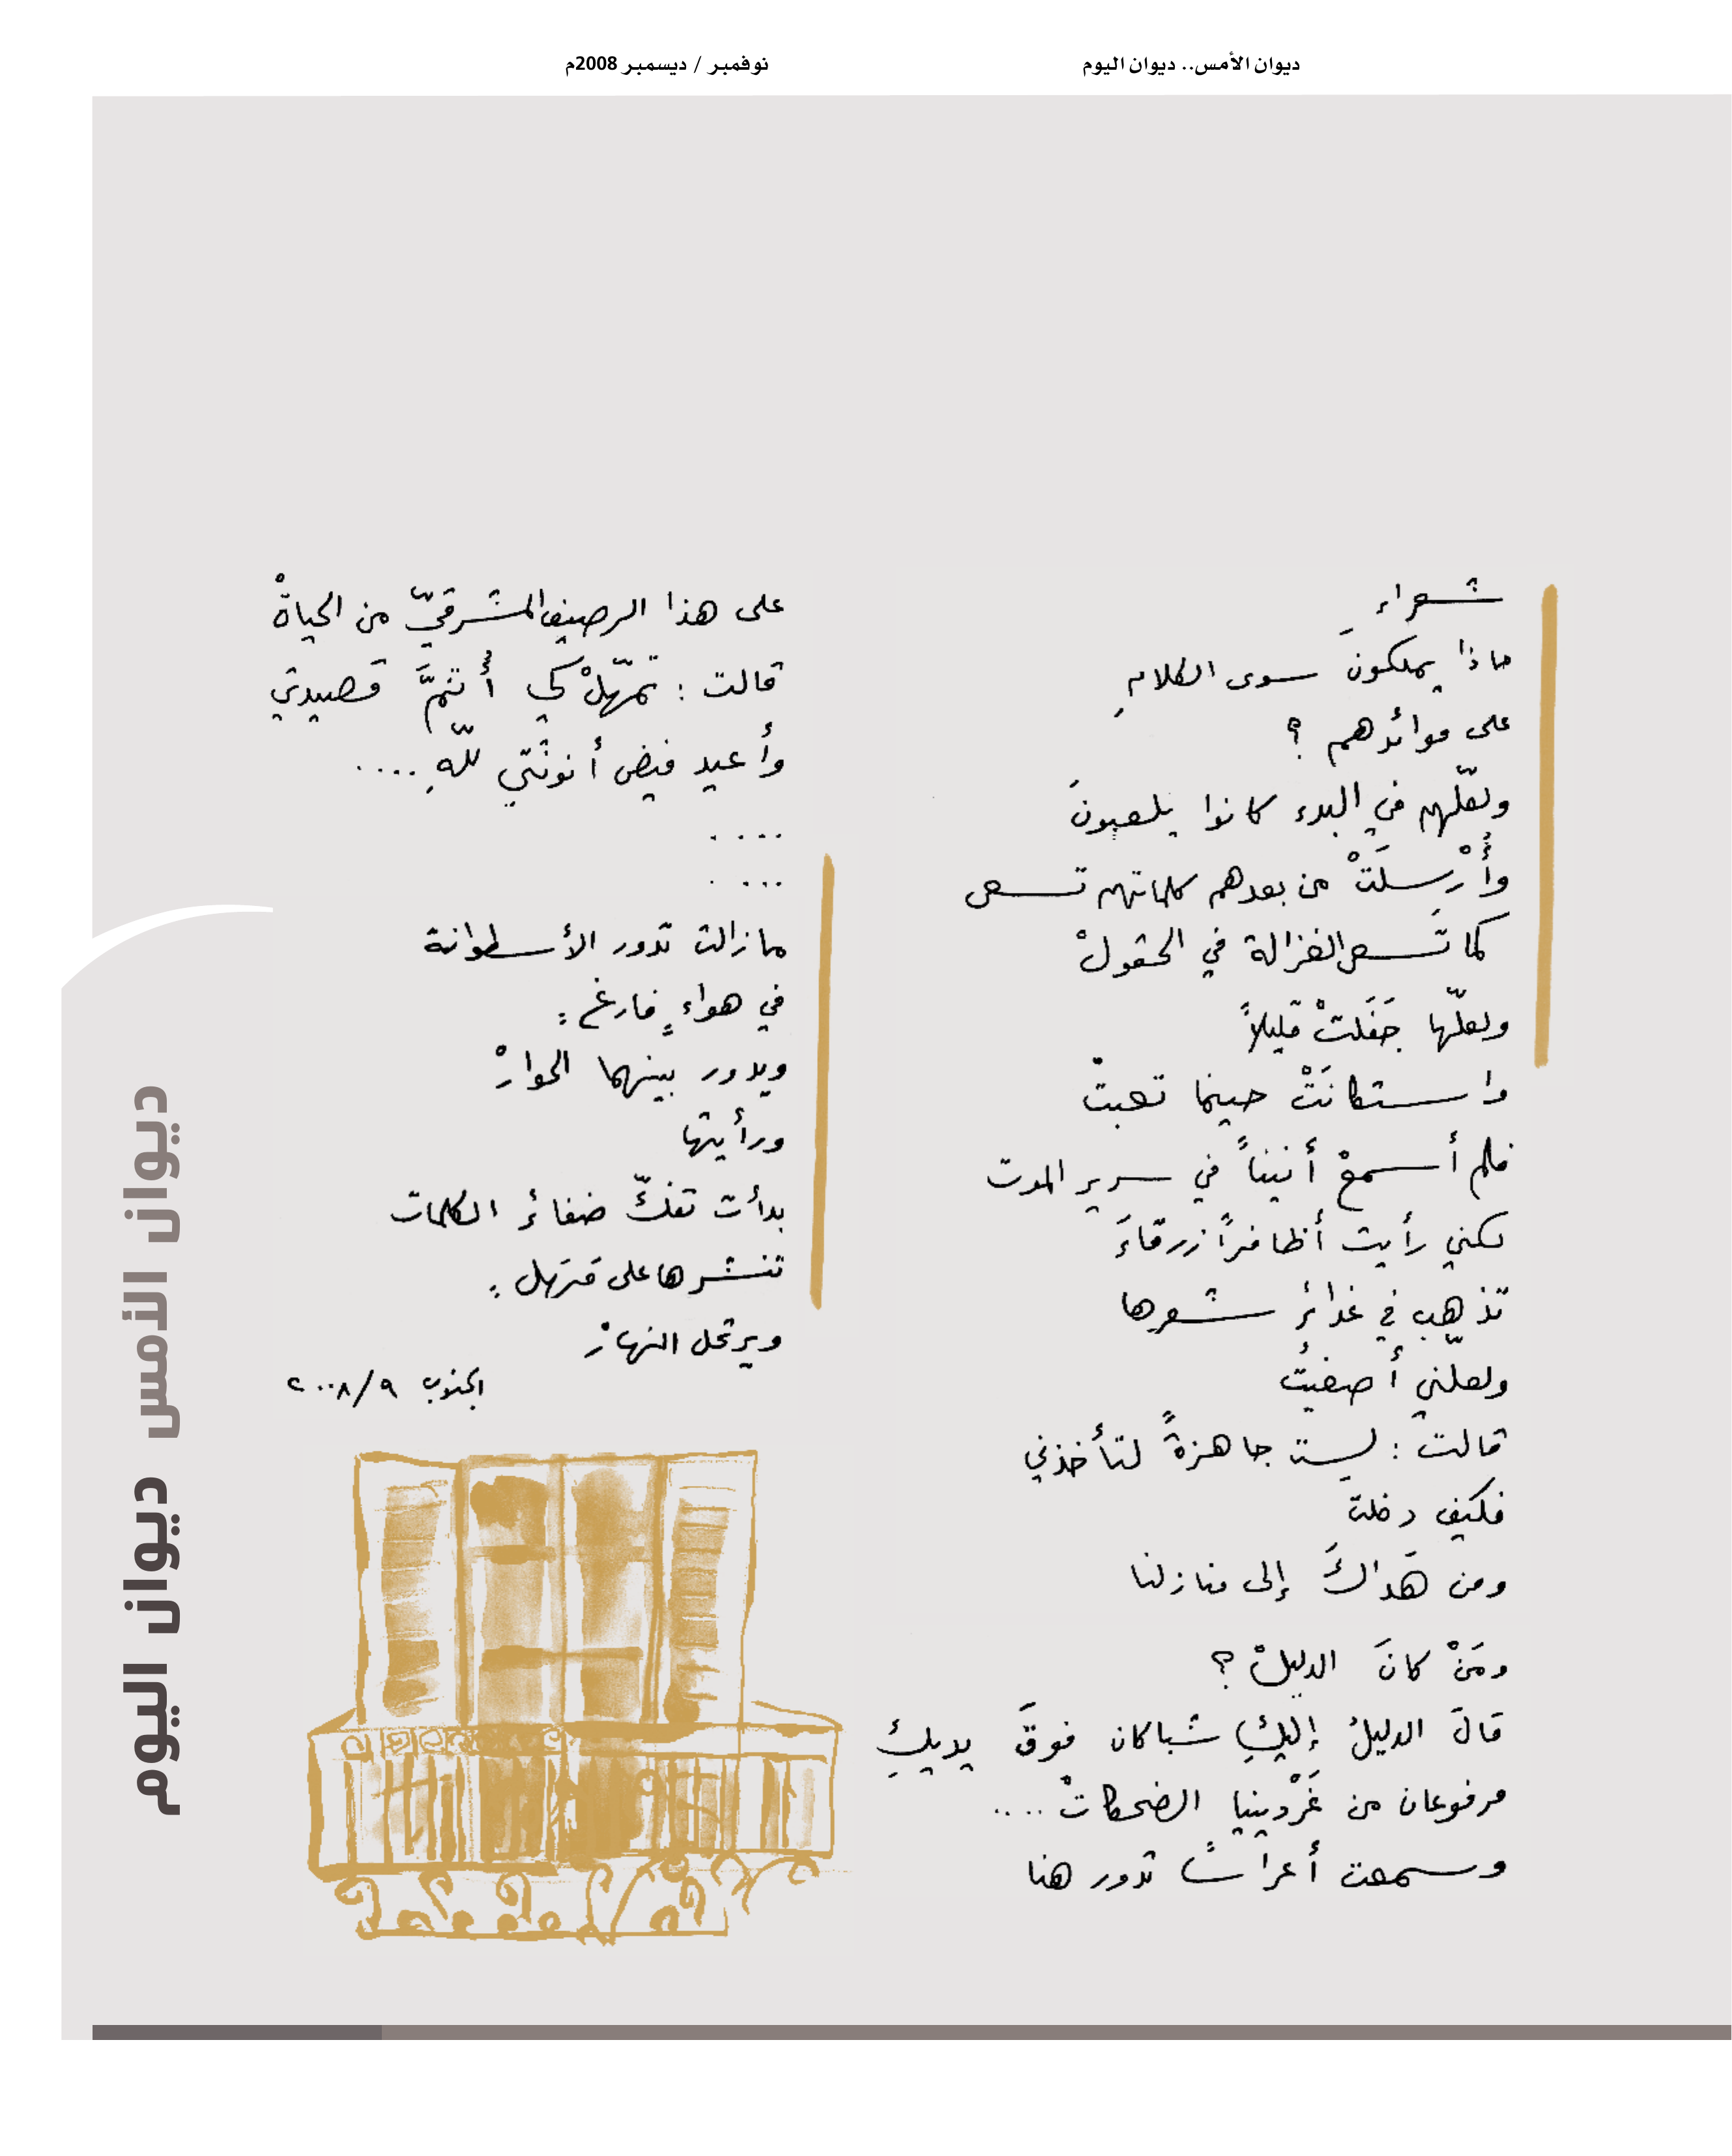 ديوان الأمس.. ديوان اليوم
نوفمبر / ديسمبر 2008م
شعراء
ماذا يملكونَ سوى الكلامِ
على موائدهم ؟
ولعلّهم في البدء كانوا يلعبونَ
وأُرْسِلَتْ من بعدهم كلماتهم تسعى
كما تسعى الغزالة في الحقولْ
ولعلّها جَفَلتْ قليلاً
واستكانَتْ حينما تعبتْ
فلم أسمعْ أنيناً في سرير الموت
لكني رأيت أظافراً زرقاءَ
تذهب في غدائر شعرها
ولعلّني أصغيتُ
قالتْ : لست جاهزةً لتأخذني
فكيف دخلتَ
ومن هَداكَ إلى منازلنا
ومَنْ كانَ الدليلْ ؟
قالَ الدليلُ إليكِ شباكان فوقَ يديكِ
مرفوعان من غَرْدينيا الضحكاتْ ....
وسمعت أعراساً تدور هنا
على هذا الرصيف المشرقيّ من الحياةْ
قالت : تمهّلْ كي أُتمَّ قصيدتي
وأعيد فيض أنوثتي للّهِ ....
....
....
مازالت تدور الأسطوانة
في هواءٍ فارغٍ
ويدور بينهما الحوارْ
ورأيتها
بدأت تفكّ ضفائر الكلمات
تنشرها على مَهَلٍ
ويرتحل النهارْ
الجنوب ٩/٢٠٠٨
ديوان الأمس ديوان اليوم